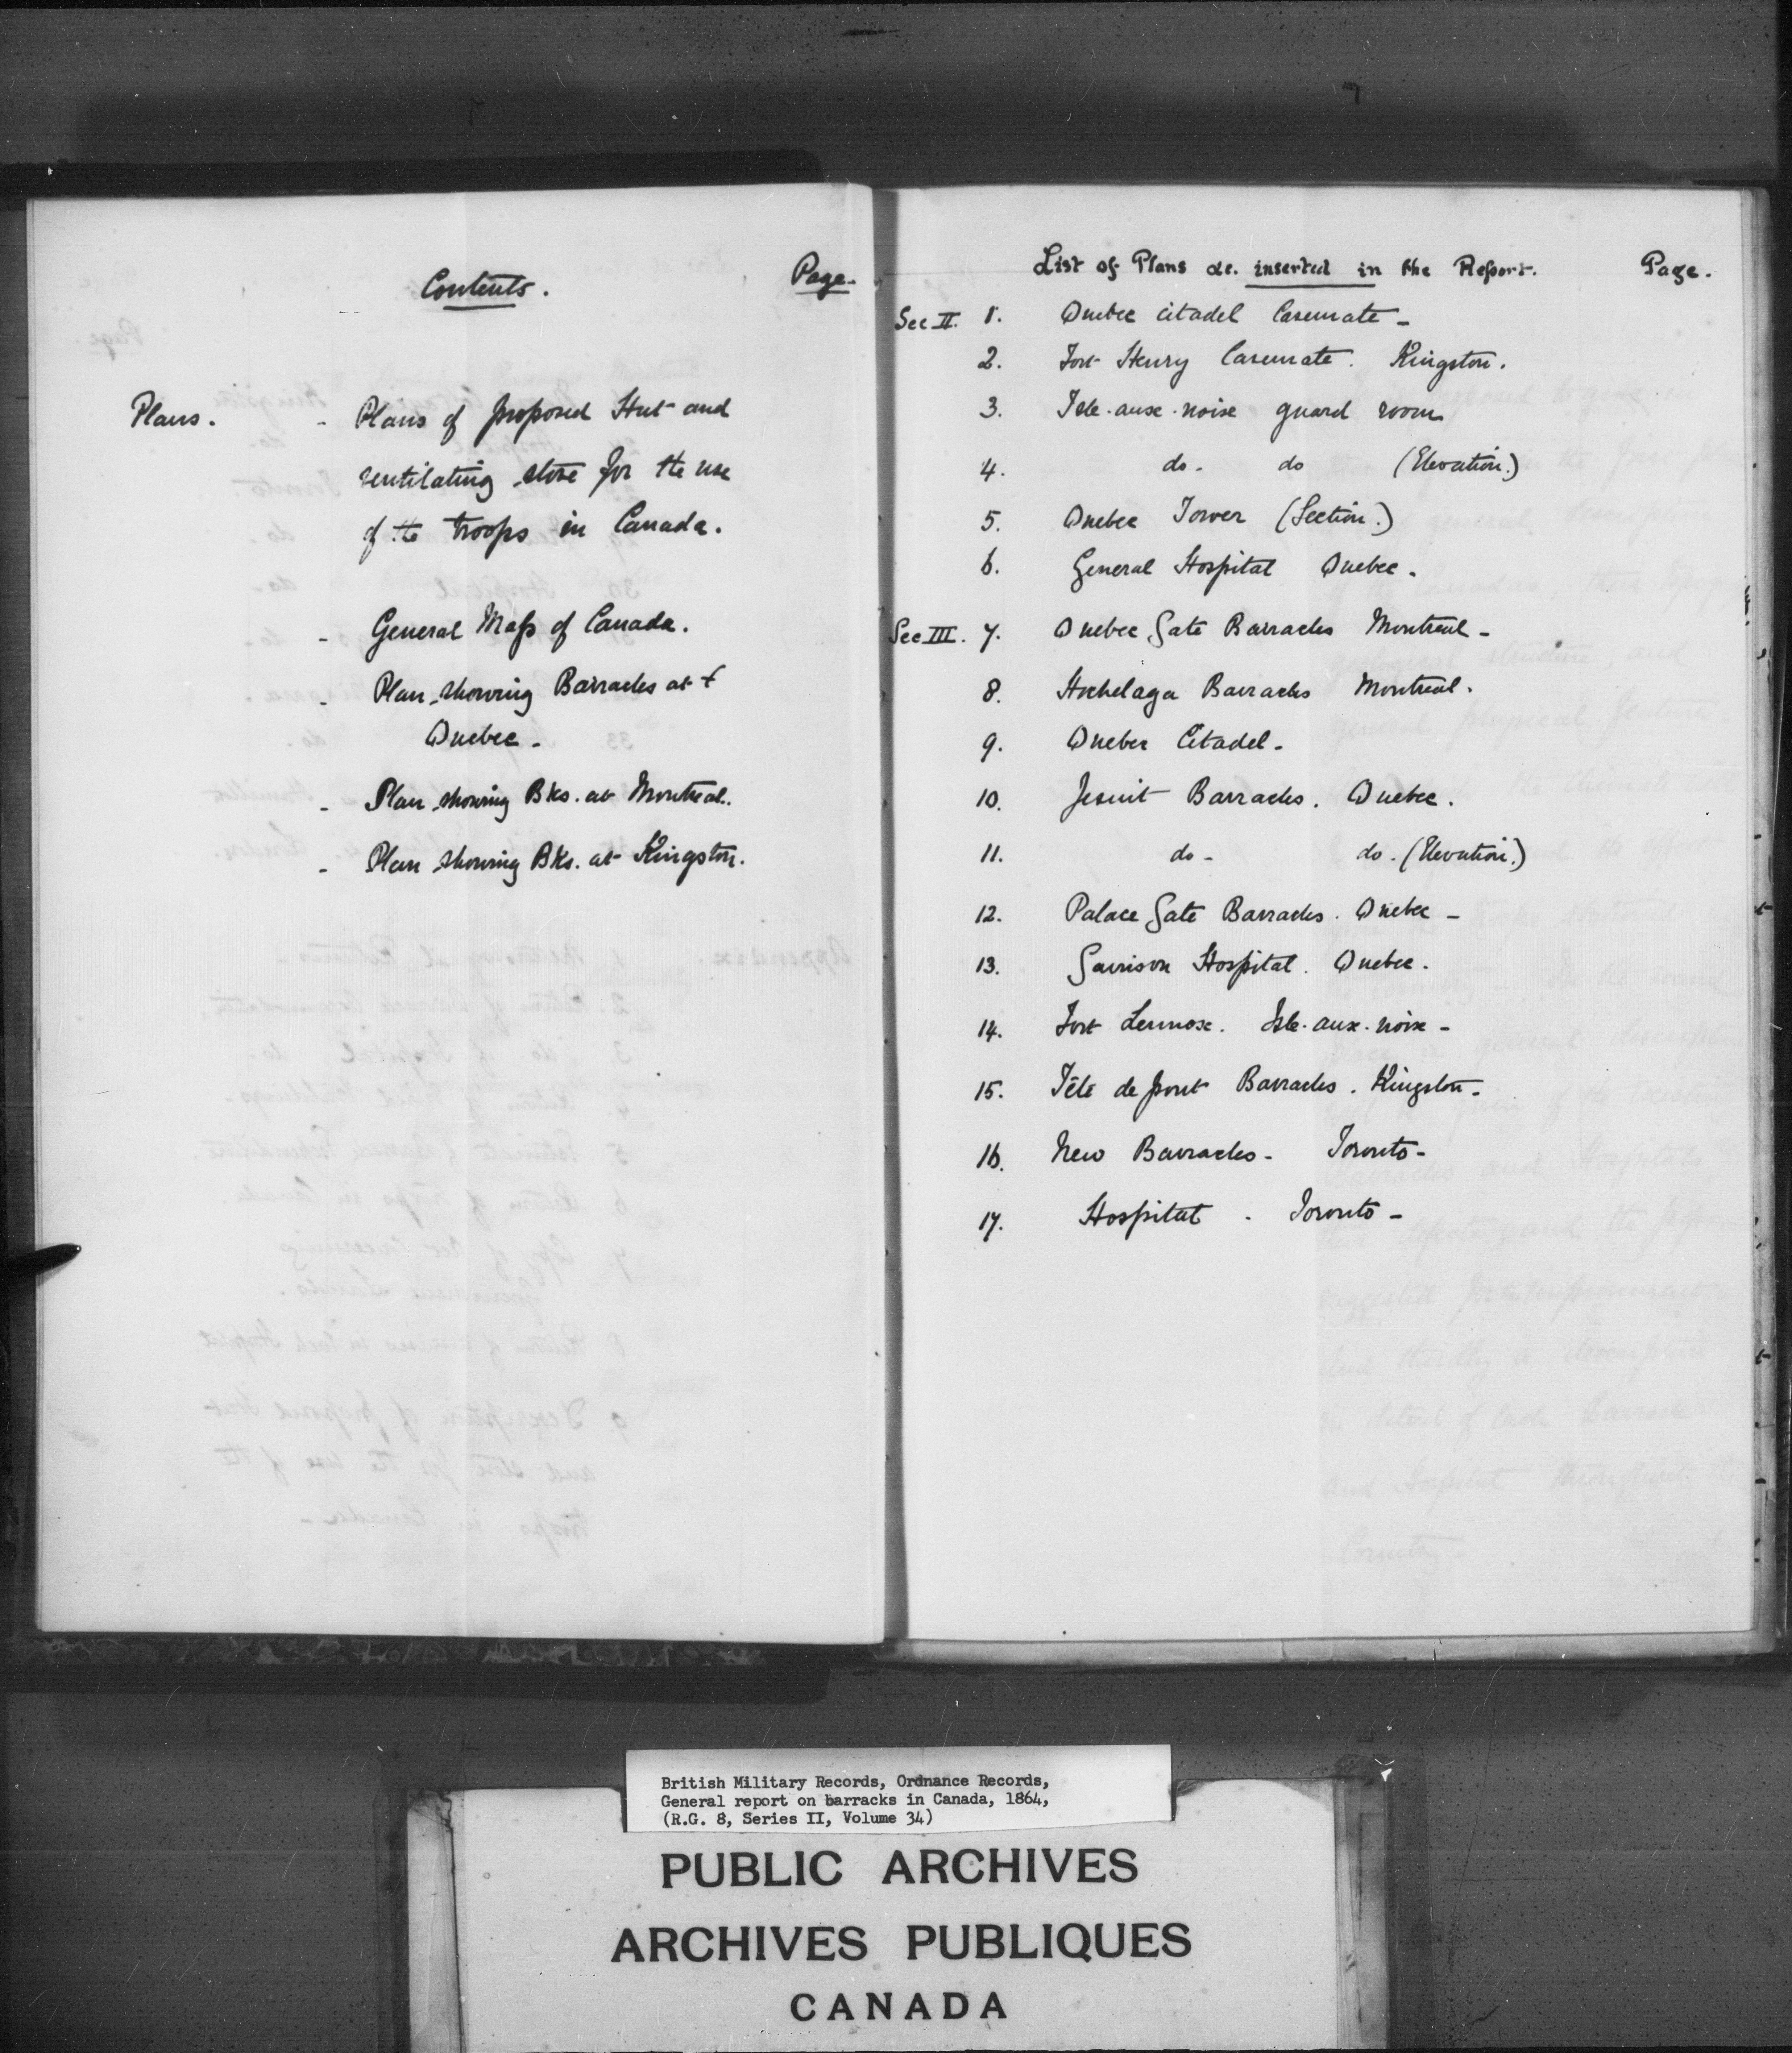 Contents.
Page.
Plans. - Plans of proposed Hut and
ventilating stove for the use
of the troops in Canada.
- General Map of Canada.
- Plan showing Barracks at
Quebec -
- Plan showing Bks. at Montreal.
- Plan showing Bks. at Kingston.
List of Plans &c. inserted in the Report. Page.
Sec II. 1. Quebec Citadel Casemate -
2. Fort Henry Casemate. Kingston.
3. Isle-aux-noix guard room
4. do. do (Elevation.)
5. Quebec Tower (Section.)
6. General Hospital Quebec.
Sec III. 7. Quebec Gate Barracks Montreal -
8. Hochelaga Barracks Montreal.
9. Quebec Citadel -
10. Jesuit Barracks. Quebec.
11. do - do. (Elevation.)
12. Palace Gate Barracks. Quebec -
13. Garrison Hospital. Quebec.
14. Fort Lennox. Isle-aux-noix -
15. Tête de pont Barracks. Kingston -
16. New Barracks - Toronto -
17. Hospital - Toronto -
British Military Records, Ordnance Records,
General report on barracks in Canada, 1864,
(R.G. 8, Series II, Volume 34)
PUBLIC ARCHIVES
ARCHIVES PUBLIQUES
CANADA